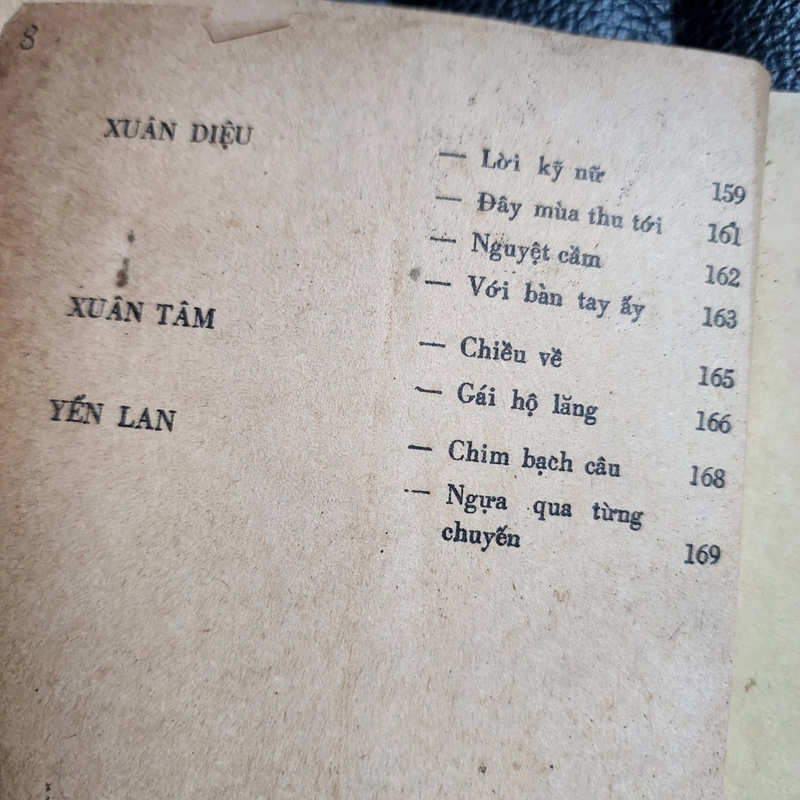 8
XUÂN DIỆU — Lời kỹ nữ 159
— Đây mùa thu tới 161
— Nguyệt cầm 162
— Với bàn tay ấy 163
XUÂN TÂM — Chiều về 165
— Gái hộ lăng 166
YẾN LAN — Chim bạch câu 168
— Ngựa qua từng
chuyến 169